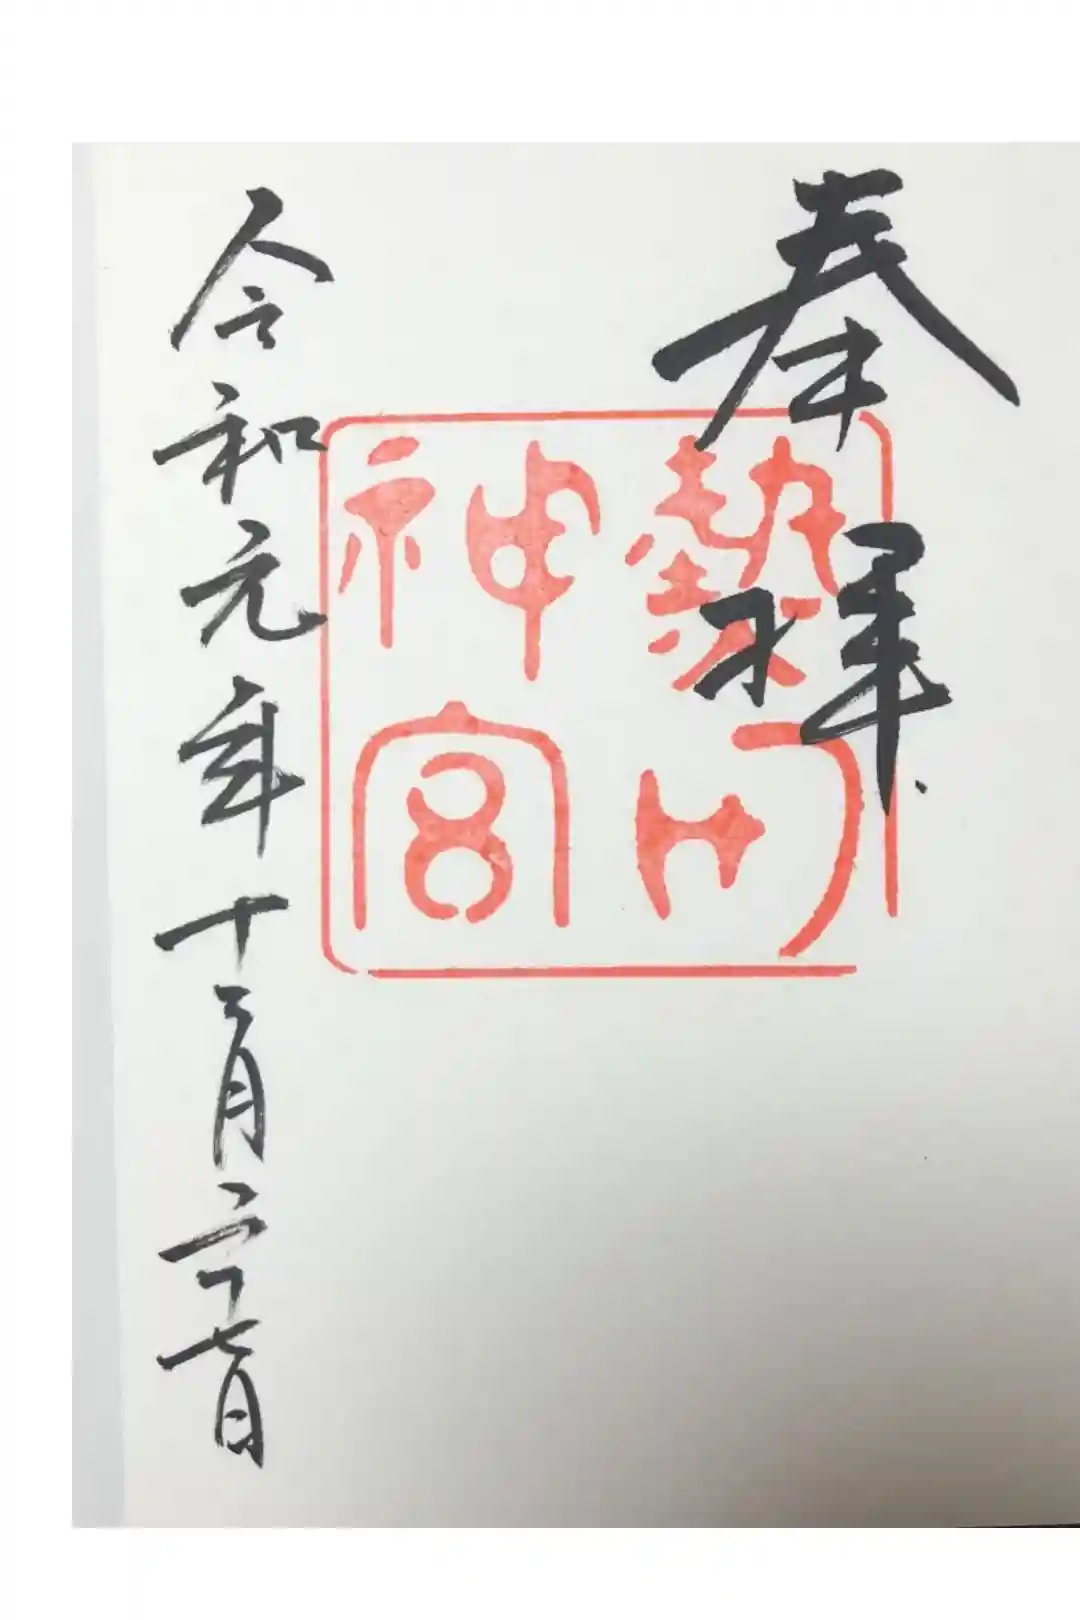 奉拝
熱田神宮
令和元年十二月二十七日